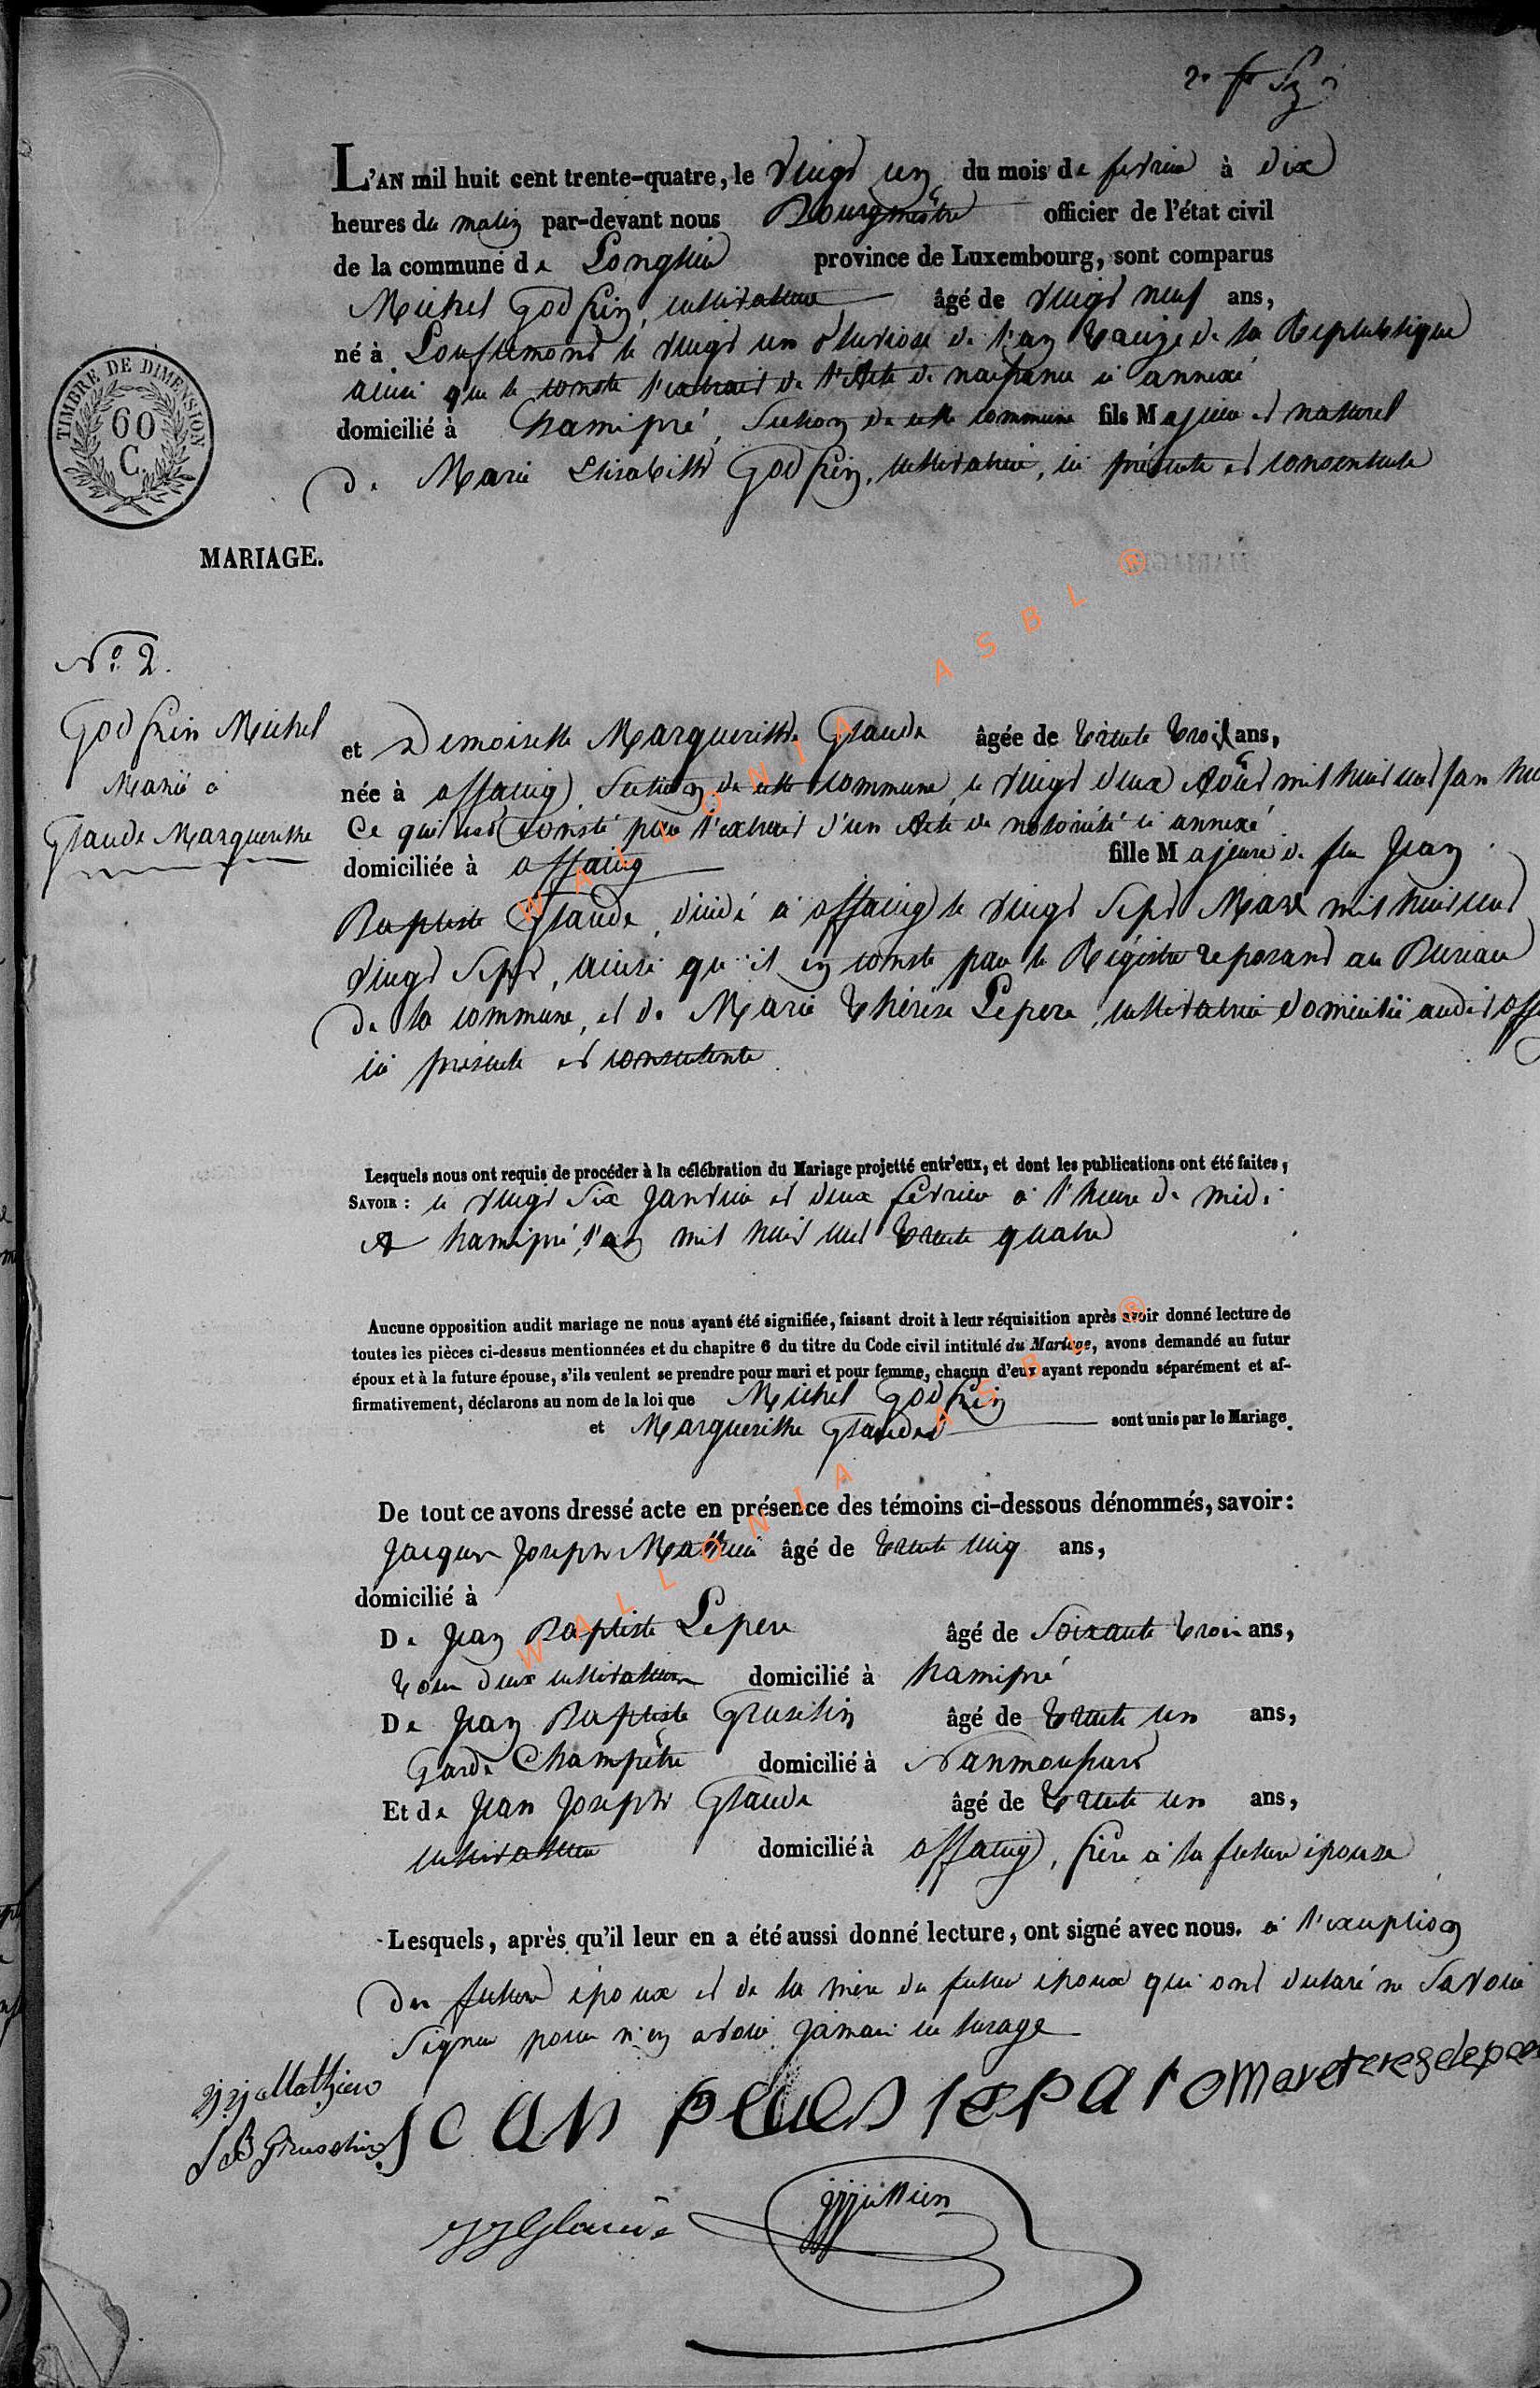 L'AN mil huit cent trente-quatre, le vingt un du mois de fevrier à dix
heures du matin par-devant nous Bourgmêtre officier de l'état civil
de la commune de Longlier province de Luxembourg, sont comparus
Michel Godfrin, cultivateur âgé de vingt neuf ans,
né à Louftemont le vingt un pluviose de l'an treize de la Republique
ainsi que le conste l'extrait de l'Acte de naissance ci annexé
domicilié à hamipré, Section de cette commune fils Majeur et naturel
de Marie Elisabeth Godfrin, cultivatrice, ici présente et consentente
TIMBRE DE DIMENSION
60
C.
MARIAGE.
No. 2.
Godfrin Michel
Marié à
Glaude Marguerithe
et Demoiselle Marguerithe Glaude âgée de trente trois ans,
née à offaing, Section de cette commune, le vingt deux Août mil huit cent
Ce qui est consté par l'extrait d'un Acte de notoriété ci annexé
domiciliée à offaing fille Majeure de feu Jean
Baptiste Glaude, décédé à offaing le vingt Sept Mars mil huit cent
vingt Sept, ainsi qu'il en conste par le Régistre reposant au Bureau
de la commune, et de Marie thérèse Lepere, cultivatrice domiciliée audit
ici présente et consentente
Lesquels nous ont requis de procéder à la célébration du Mariage projetté entr'eux, et dont les publications ont été faites,
SAVOIR : le vingt Six Janvier et deux fevrier à l'heure de midi
A hamipré, l'an mil huit cent trente quatre
Aucune opposition audit mariage ne nous ayant été signifiée, faisant droit à leur réquisition après avoir donné lecture de
toutes les pièces ci-dessus mentionnées et du chapitre 6 du titre du Code civil intitulé du Mariage, avons demandé au futur
époux et à la future épouse, s'ils veulent se prendre pour mari et pour femme, chacun d'eux ayant repondu séparément et af-
firmativement, déclarons au nom de la loi que Michel Godfrin
et Marguerithe Glaude sont unis par le Mariage.
De tout ce avons dressé acte en présence des témoins ci-dessous dénommés, savoir:
Jacques Joseph Mathieu âgé de trente cinq ans,
domicilié à
De Jean Baptiste Lepere âgé de Soixante trois ans,
tous deux cultivateurs domicilié à hamipré
De Jean Baptiste Gruselin âgé de trente un ans,
Garde Champêtre domicilié à Namoussart
Et de Jean Joseph Glaude âgé de trente un ans,
cultivateur domicilié à offaing, frère à la future épouse
Lesquels, après qu'il leur en a été aussi donné lecture, ont signé avec nous. à l'exception
des futurs époux et de la mère du futur époux qui ont declaré ne Savoir
Signer pour n'en avoir Jamais eu lusage
JJ Mathieu
JB Gruselin
JJ Glaude
WALLONIA ASBL ®
WALLONIA ASBL ®